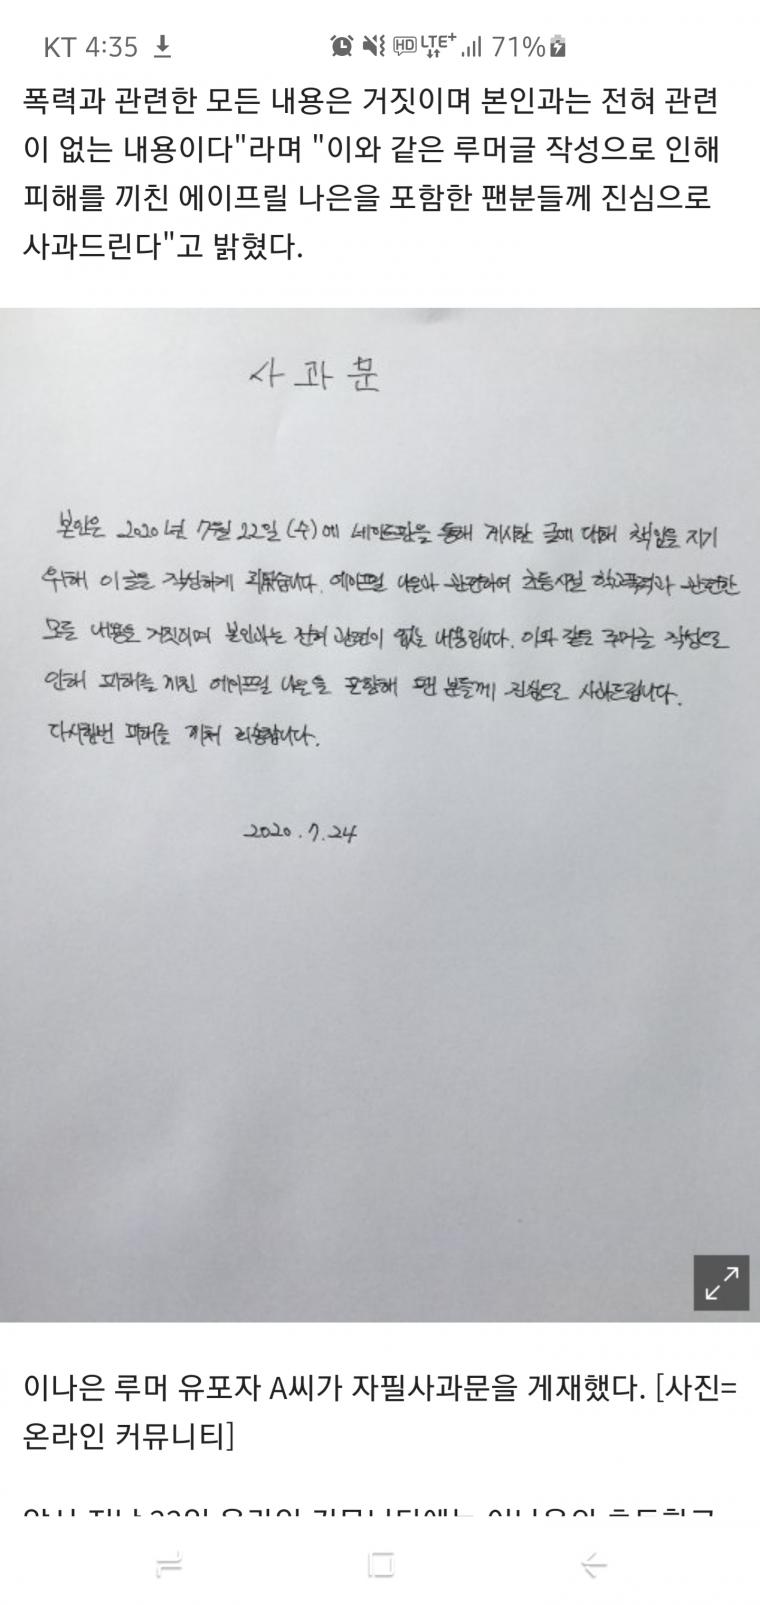 KT 4:35 HD LTE+ 71%
폭력과 관련한 모든 내용은 거짓이며 본인과는 전혀 관련
이 없는 내용이다"라며 "이와 같은 루머글 작성으로 인해
피해를 끼친 에이프릴 나은을 포함한 팬분들께 진심으로
사과드린다"고 밝혔다.
사과문
본인은 2020년 7월 22일 (수)에 네이트판을 통해 게시한 글에 대해 책임을 지기
위해 이 글을 작성하게 되었습니다. 에이프릴 나은과 관련하여 초등시절 학교폭력과 관련한
모든 내용은 거짓이며 본인과는 전혀 관련이 없는 내용입니다. 이와 같은 루머글 작성으로
인해 피해를 끼친 에이프릴 나은을 포함해 팬 분들께 진심으로 사과드립니다.
다시한번 피해를 끼쳐 죄송합니다.
2020.7.24
이나은 루머 유포자 A씨가 자필사과문을 게재했다. [사진=
온라인 커뮤니티]